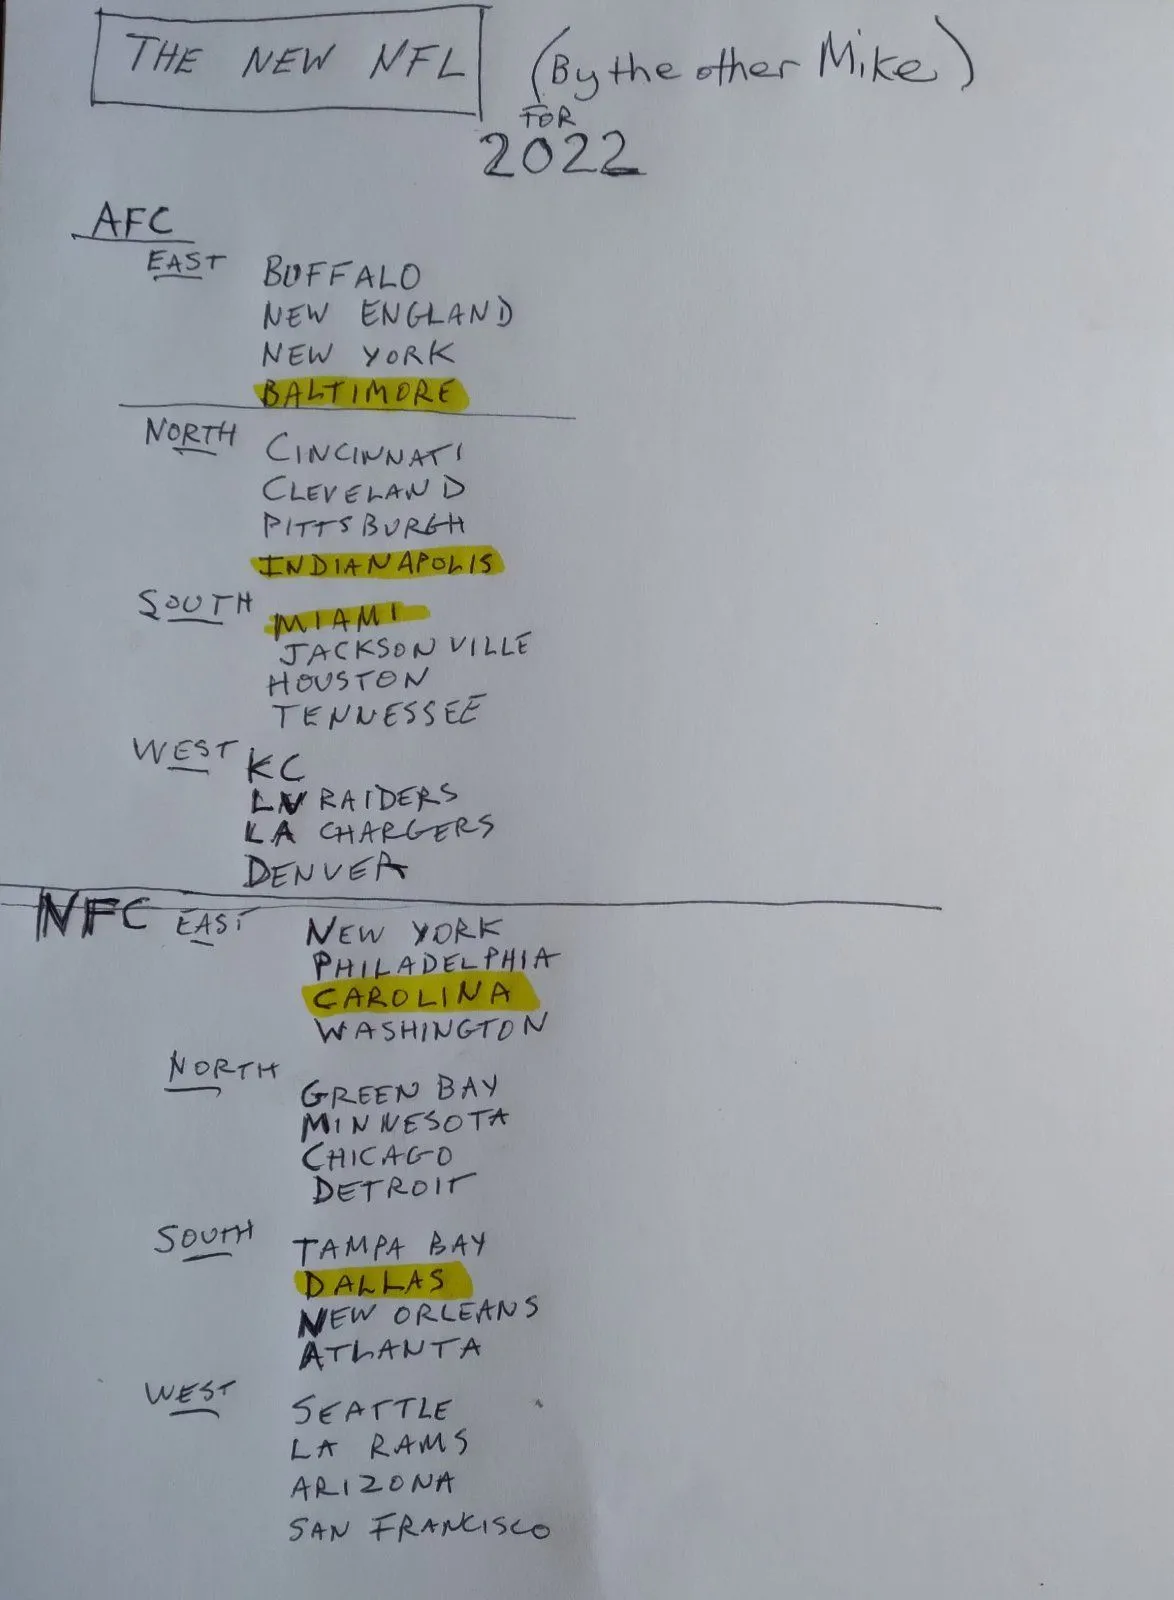 THE NEW NFL (By the other Mike)
FOR
2022
AFC
EAST BUFFALO
NEW ENGLAND
NEW YORK
BALTIMORE
NORTH CINCINNATI
CLEVELAND
PITTSBURGH
INDIANAPOLIS
SOUTH MIAMI
JACKSONVILLE
HOUSTON
TENNESSEE
WEST KC
LV RAIDERS
LA CHARGERS
DENVER
NFC EAST NEW YORK
PHILADELPHIA
CAROLINA
WASHINGTON
NORTH GREEN BAY
MINNESOTA
CHICAGO
DETROIT
SOUTH TAMPA BAY
DALLAS
NEW ORLEANS
ATLANTA
WEST SEATTLE
LA RAMS
ARIZONA
SAN FRANCISCO